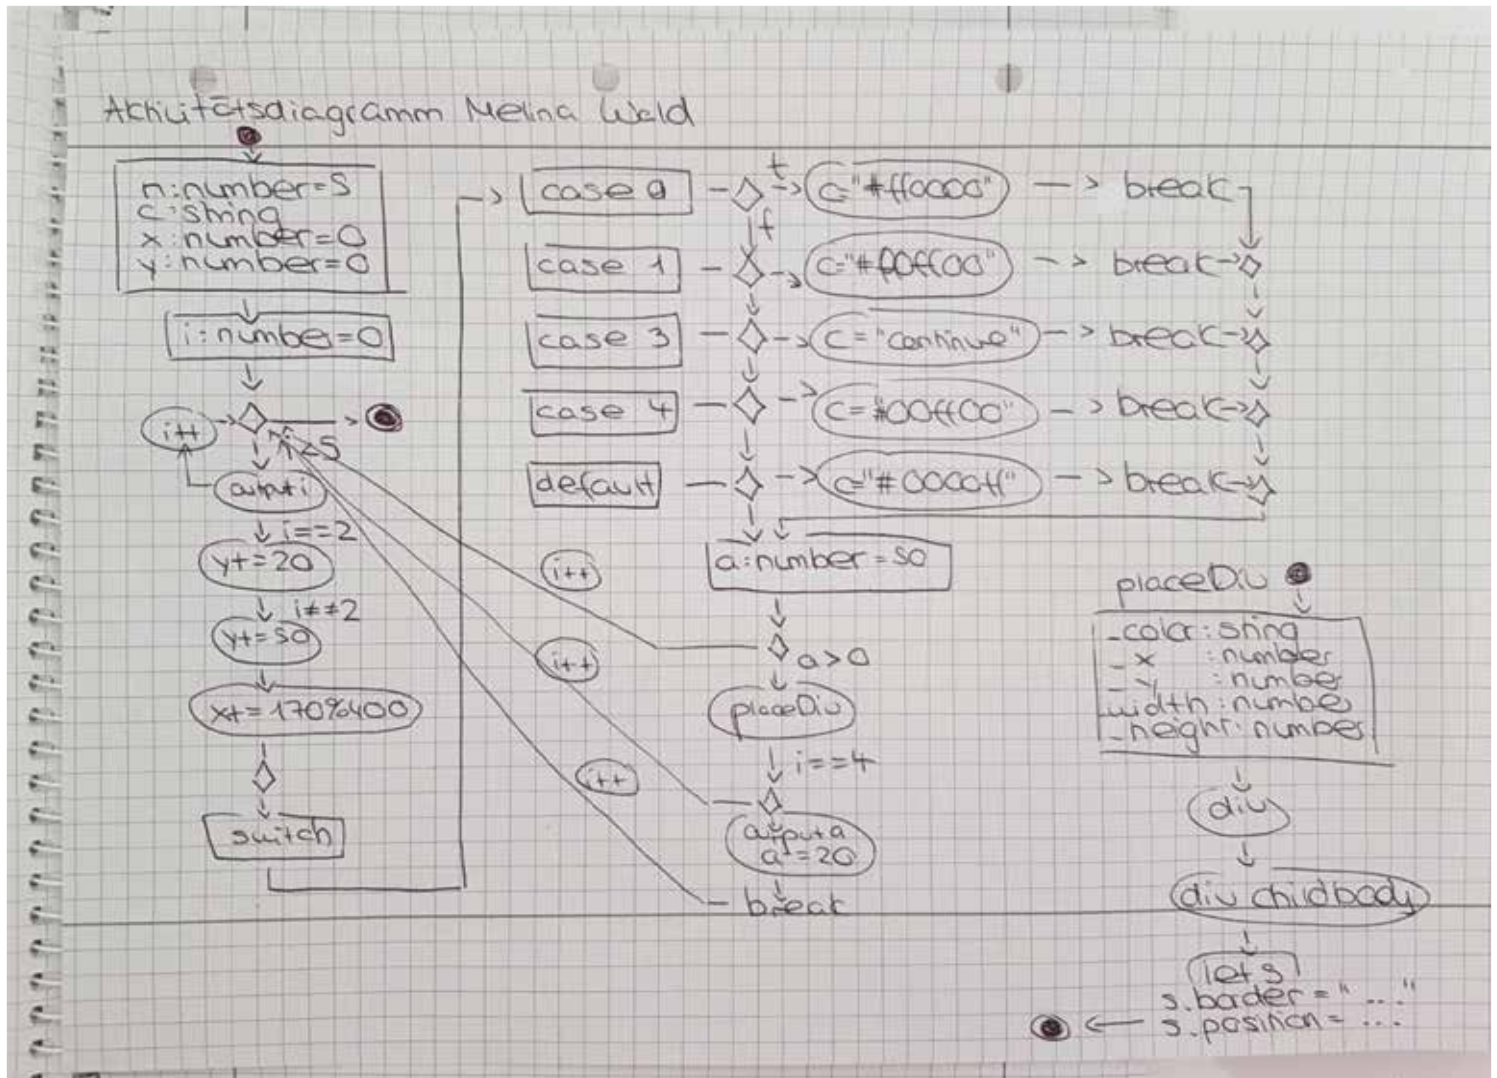 Aktivitätsdiagramm Melina Wald
n:number=5
c:string
x:number=0
y:number=0
i:number=0
i++
i<5
output i
i==2
y+=20
i≠≠2
y+=50
x+=170%400
switch
case 0
t
c="#ff0000"
break
f
case 1
c="#00ff00"
break
case 3
c="continue"
break
case 4
c=#00ff00"
break
default
c="#0000ff"
break
a:number=50
i++
a>0
i++
placeDiv
i==4
i++
output a
a-=20
break
placeDiv
_color:string
_x :number
_y :number
_width:number
_height:number
div
div childbody
let s
s.border="..."
s.position=...